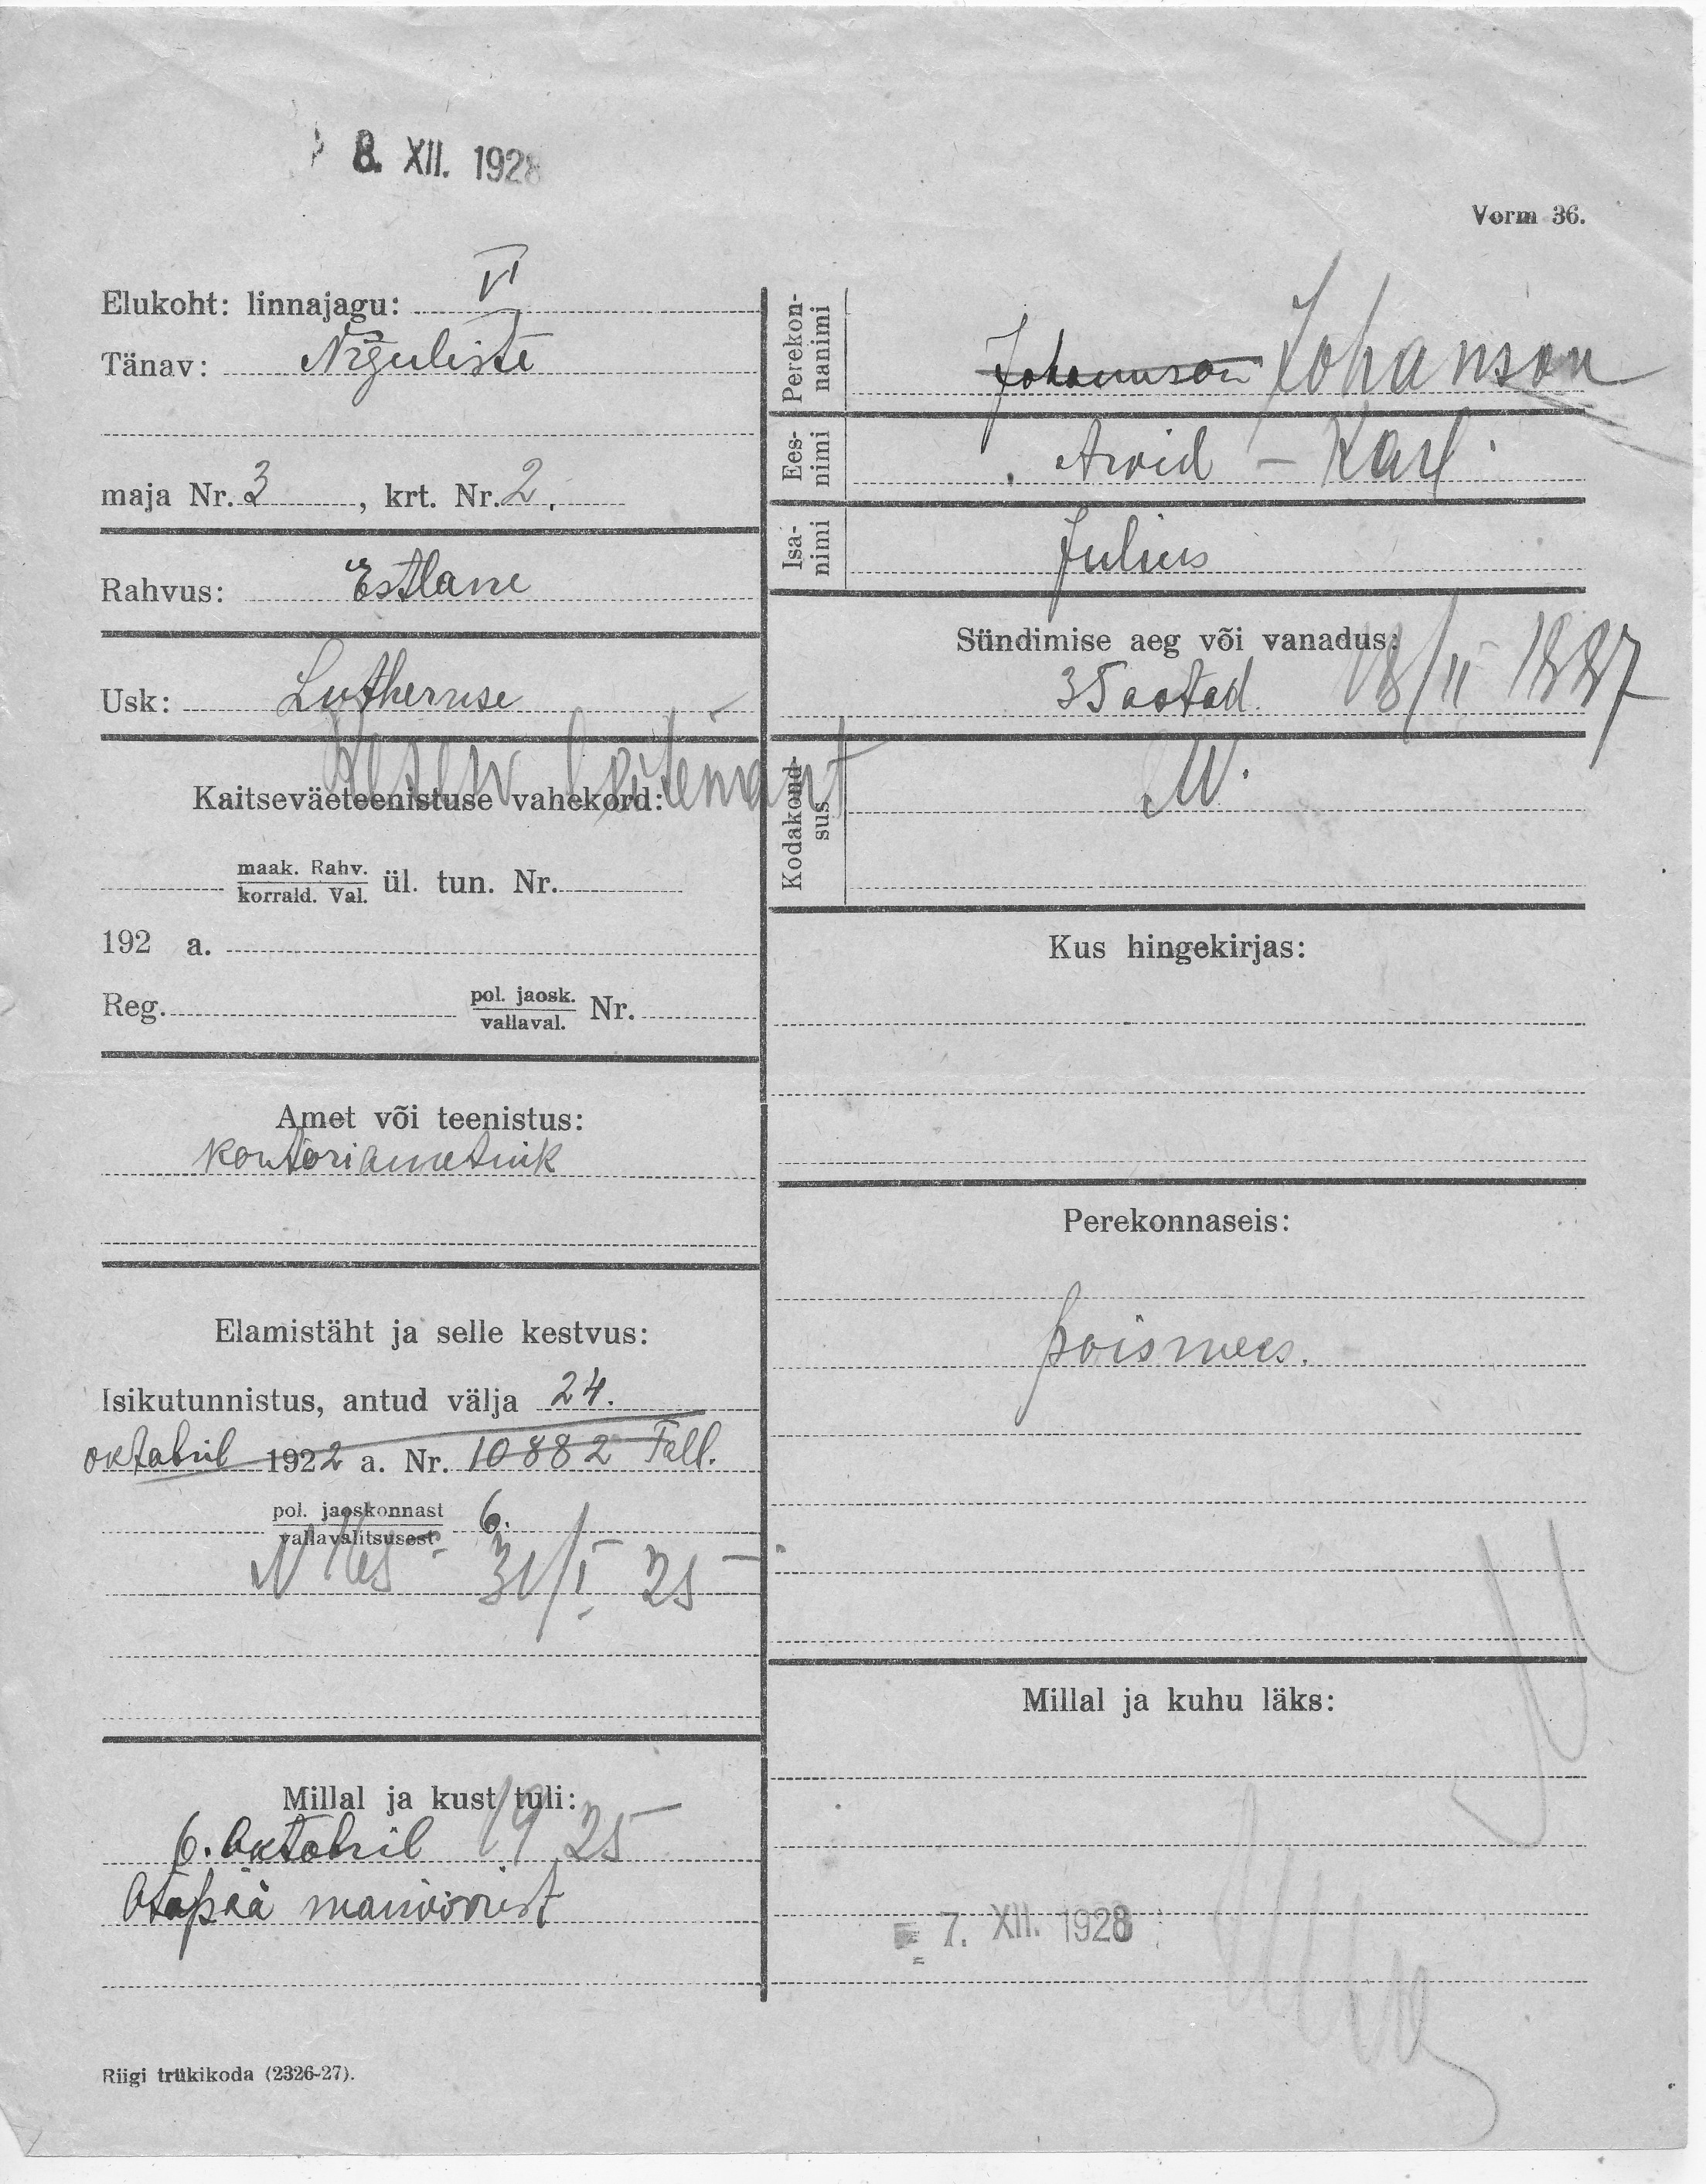 8. XII. 1928
Vorm 36.
Elukoht: linnajagu: VI
Tänav: Niguliste
maja Nr. 3, krt. Nr. 2.
Rahvus: Estlane
Usk: Lutheruse
Kaitseväeteenistuse vahekord:
maak. Rahv.
korrald. Val.
ül. tun. Nr.
192 a.
Reg. pol. jaosk.
vallaval.
Nr.
Amet või teenistus:
kontoriametnik
Elamistäht ja selle kestvus:
Isikutunnistus, antud välja 24.
oktobril 1922 a. Nr. 10882 Tall.
pol. jaoskonnast 6.
vallavalitsusest
31/I 25
Millal ja kust tuli:
6. Oktobril 1925
Otepää
Riigi trükikoda (2326-27).
Perekon-
nanimi
Johannson Johanson
Ees-
nimi
Arvid - Karl
Isa-
nimi
Julius
Sündimise aeg või vanadus:
35 aastad. 18/II 1887
Kodakond-
sus
Kus hingekirjas:
Perekonnaseis:
poismees.
Millal ja kuhu läks:
7. XII. 1928